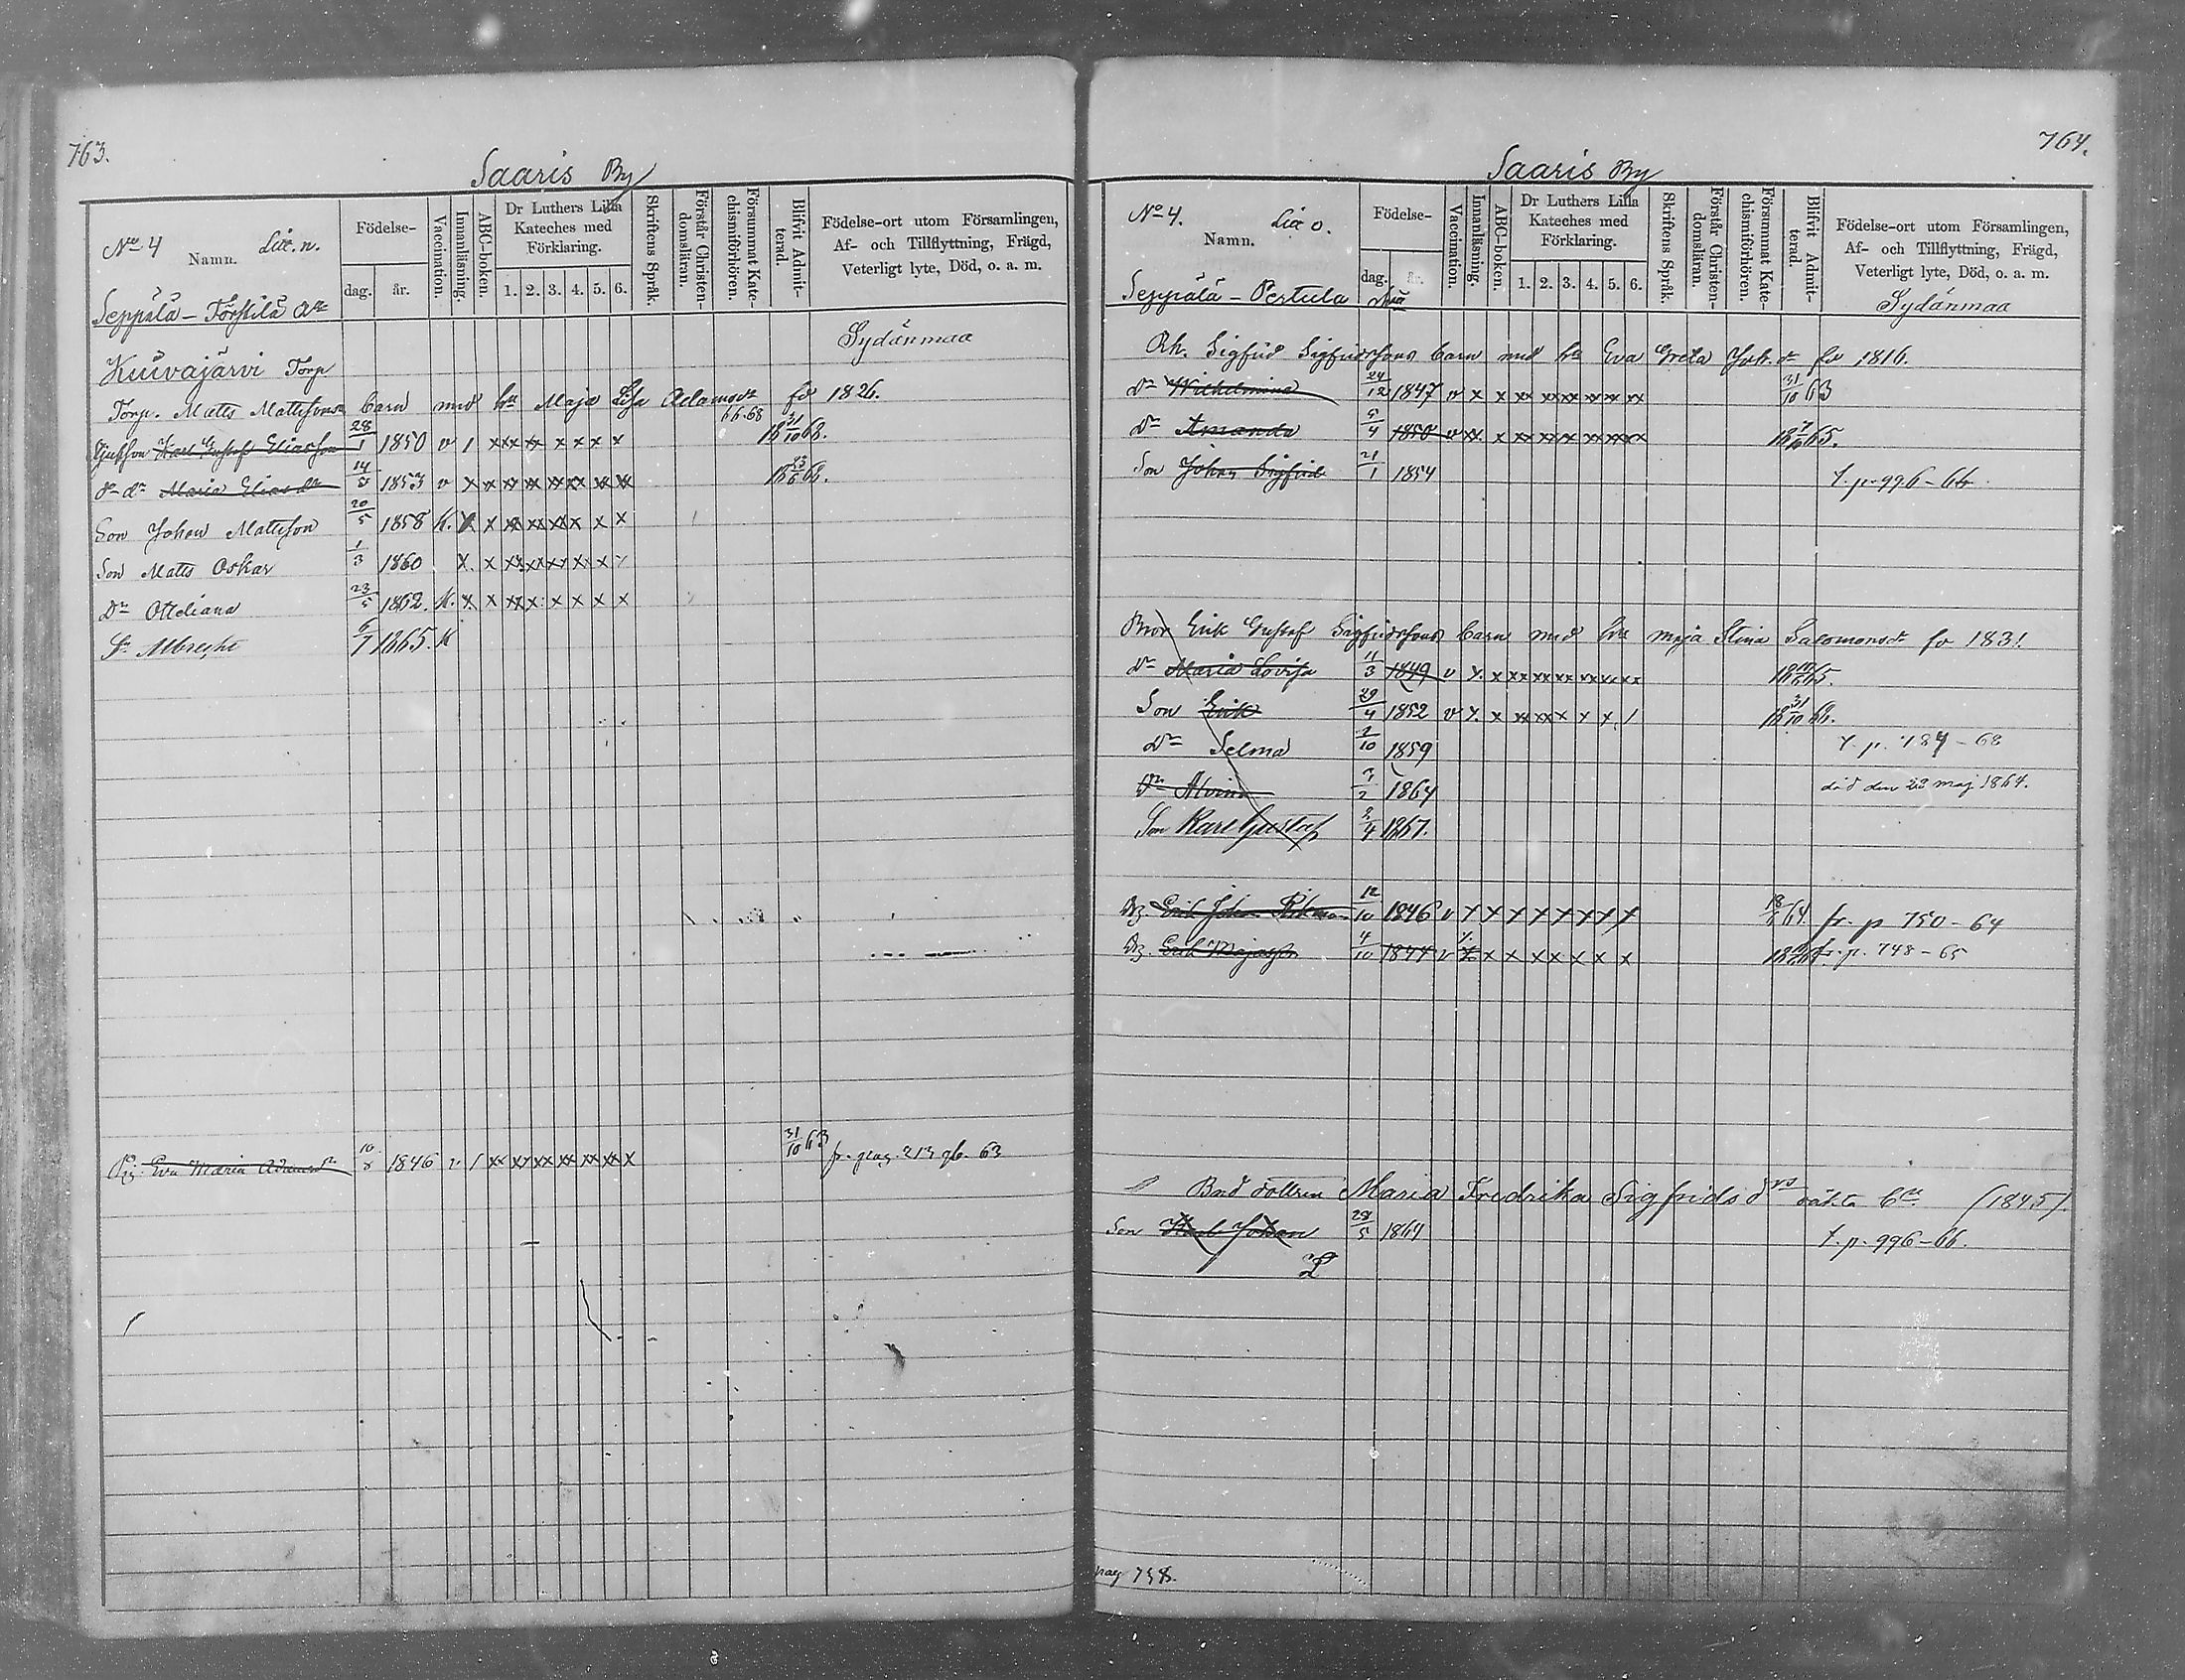 763.
Saaris By
No 4 Litt. n.
Namn.
Födelse-
dag. år.
Vaccination.
Innanläsning.
ABC-boken.
Dr Luthers Lilla
Kateches med
Förklaring.
1. 2. 3. 4. 5. 6.
Skriftens Språk.
Förstår Christen-
domsläran.
Försummat Kate-
chismiförhören.
Blifvit Admit-
terad.
Födelse-ort utom Församlingen,
Af- och Tillflyttning, Frägd,
Veterligt lyte, Död, o. a. m.
Seppälä - Torstila
Sydänmaa
Kuivajärvi Torp
Torp. Matts Mattssons barn med hu Maja Lisa Adamsdr fö 1826.
66-68
Karl Gustaf Eliasson 28/1 1850 v / x xx xx x x x x 31/10 68.
dr Maria Elias dr 14/3 1853 v x x xx xx xx xx xx xx 68.
Son Johan Mattsson 20/5 1858 k. x x xx xx xx x x x
Son Matts Oskar 1/3 1860 x. x xx xx xx x x x
Dr Ottiliana 23/5 1862. k. x x xx x x x x x
Sn Albrecht 6/7 1865. k
Pig. Eva Maria Adamsdr 10/8 1846 v / xx xx xx xx xx xx x 31/10 63 fr. pag. 213 gb. 63
764.
Saaris By
No 4. Litt o.
Namn.
Födelse-
dag. år.
Vaccination.
Innanläsning.
ABC-boken.
Dr Luthers Lilla
Kateches med
Förklaring.
1. 2. 3. 4. 5. 6.
Skriftens Språk.
Förstår Christen-
domsläran.
Försummat Kate-
chismiförhören.
Blifvit Admit-
terad.
Födelse-ort utom Församlingen,
Af- och Tillflyttning, Frägd,
Veterligt lyte, Död, o. a. m.
Seppälä - Pertula
Sydänmaa
Rh. Sigfrid Sigfridssons barn med hu Eva Greta Joh. dr fö 1816.
dr Wilhelmina 24/12 1847 v x x xx xx xx xx xx xx 31/10 63
dr Amanda 5/4 1850 v xx x xx xx xx xx xx xx 65.
Son Johan Sigfrid 21/1 1854 t. p. 996-66.
Bror Erik Gustaf Sigfridssons barn med hu Maja Stina Salomonsdr fö 1831.
dr Maria Lovisa 11/3 1849 v x. x xx xx xx xx xx xx 65.
Son Erik 29/4 1852 v x. x xx xx x x x / 31/10 68.
dr Selma 2/10 1859 t. p. 784-68
dr Alvina 1864 död den 28 maj 1864.
Son Karl Gustaf 2/4 1867.
Dg. Erik Johan 12/10 1846 v x x x x x x x x 18/6 64 fr. p 750-64
Dg. Erik Majasson 4/10 1844 v x x x x x x x x fr. p. 748-65
Bnd dottren Maria Fredrika Sigfrids drs oäkta bn (1845).
Son Karl Johan 28/5 1864 t. p. 996-66.
pag 758.